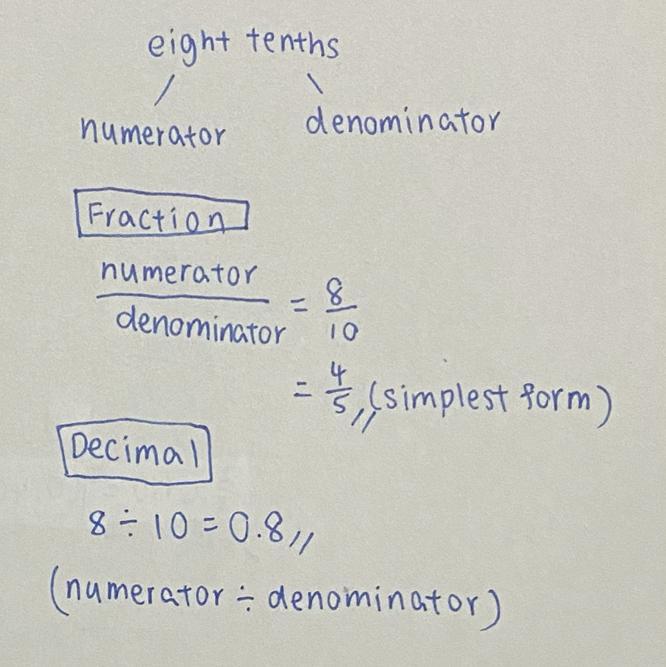 eight tenths
numerator denominator
Fraction
numerator/denominator = 8/10
= 4/5 // (simplest form)
Decimal
8 ÷ 10 = 0.8 //
(numerator ÷ denominator)